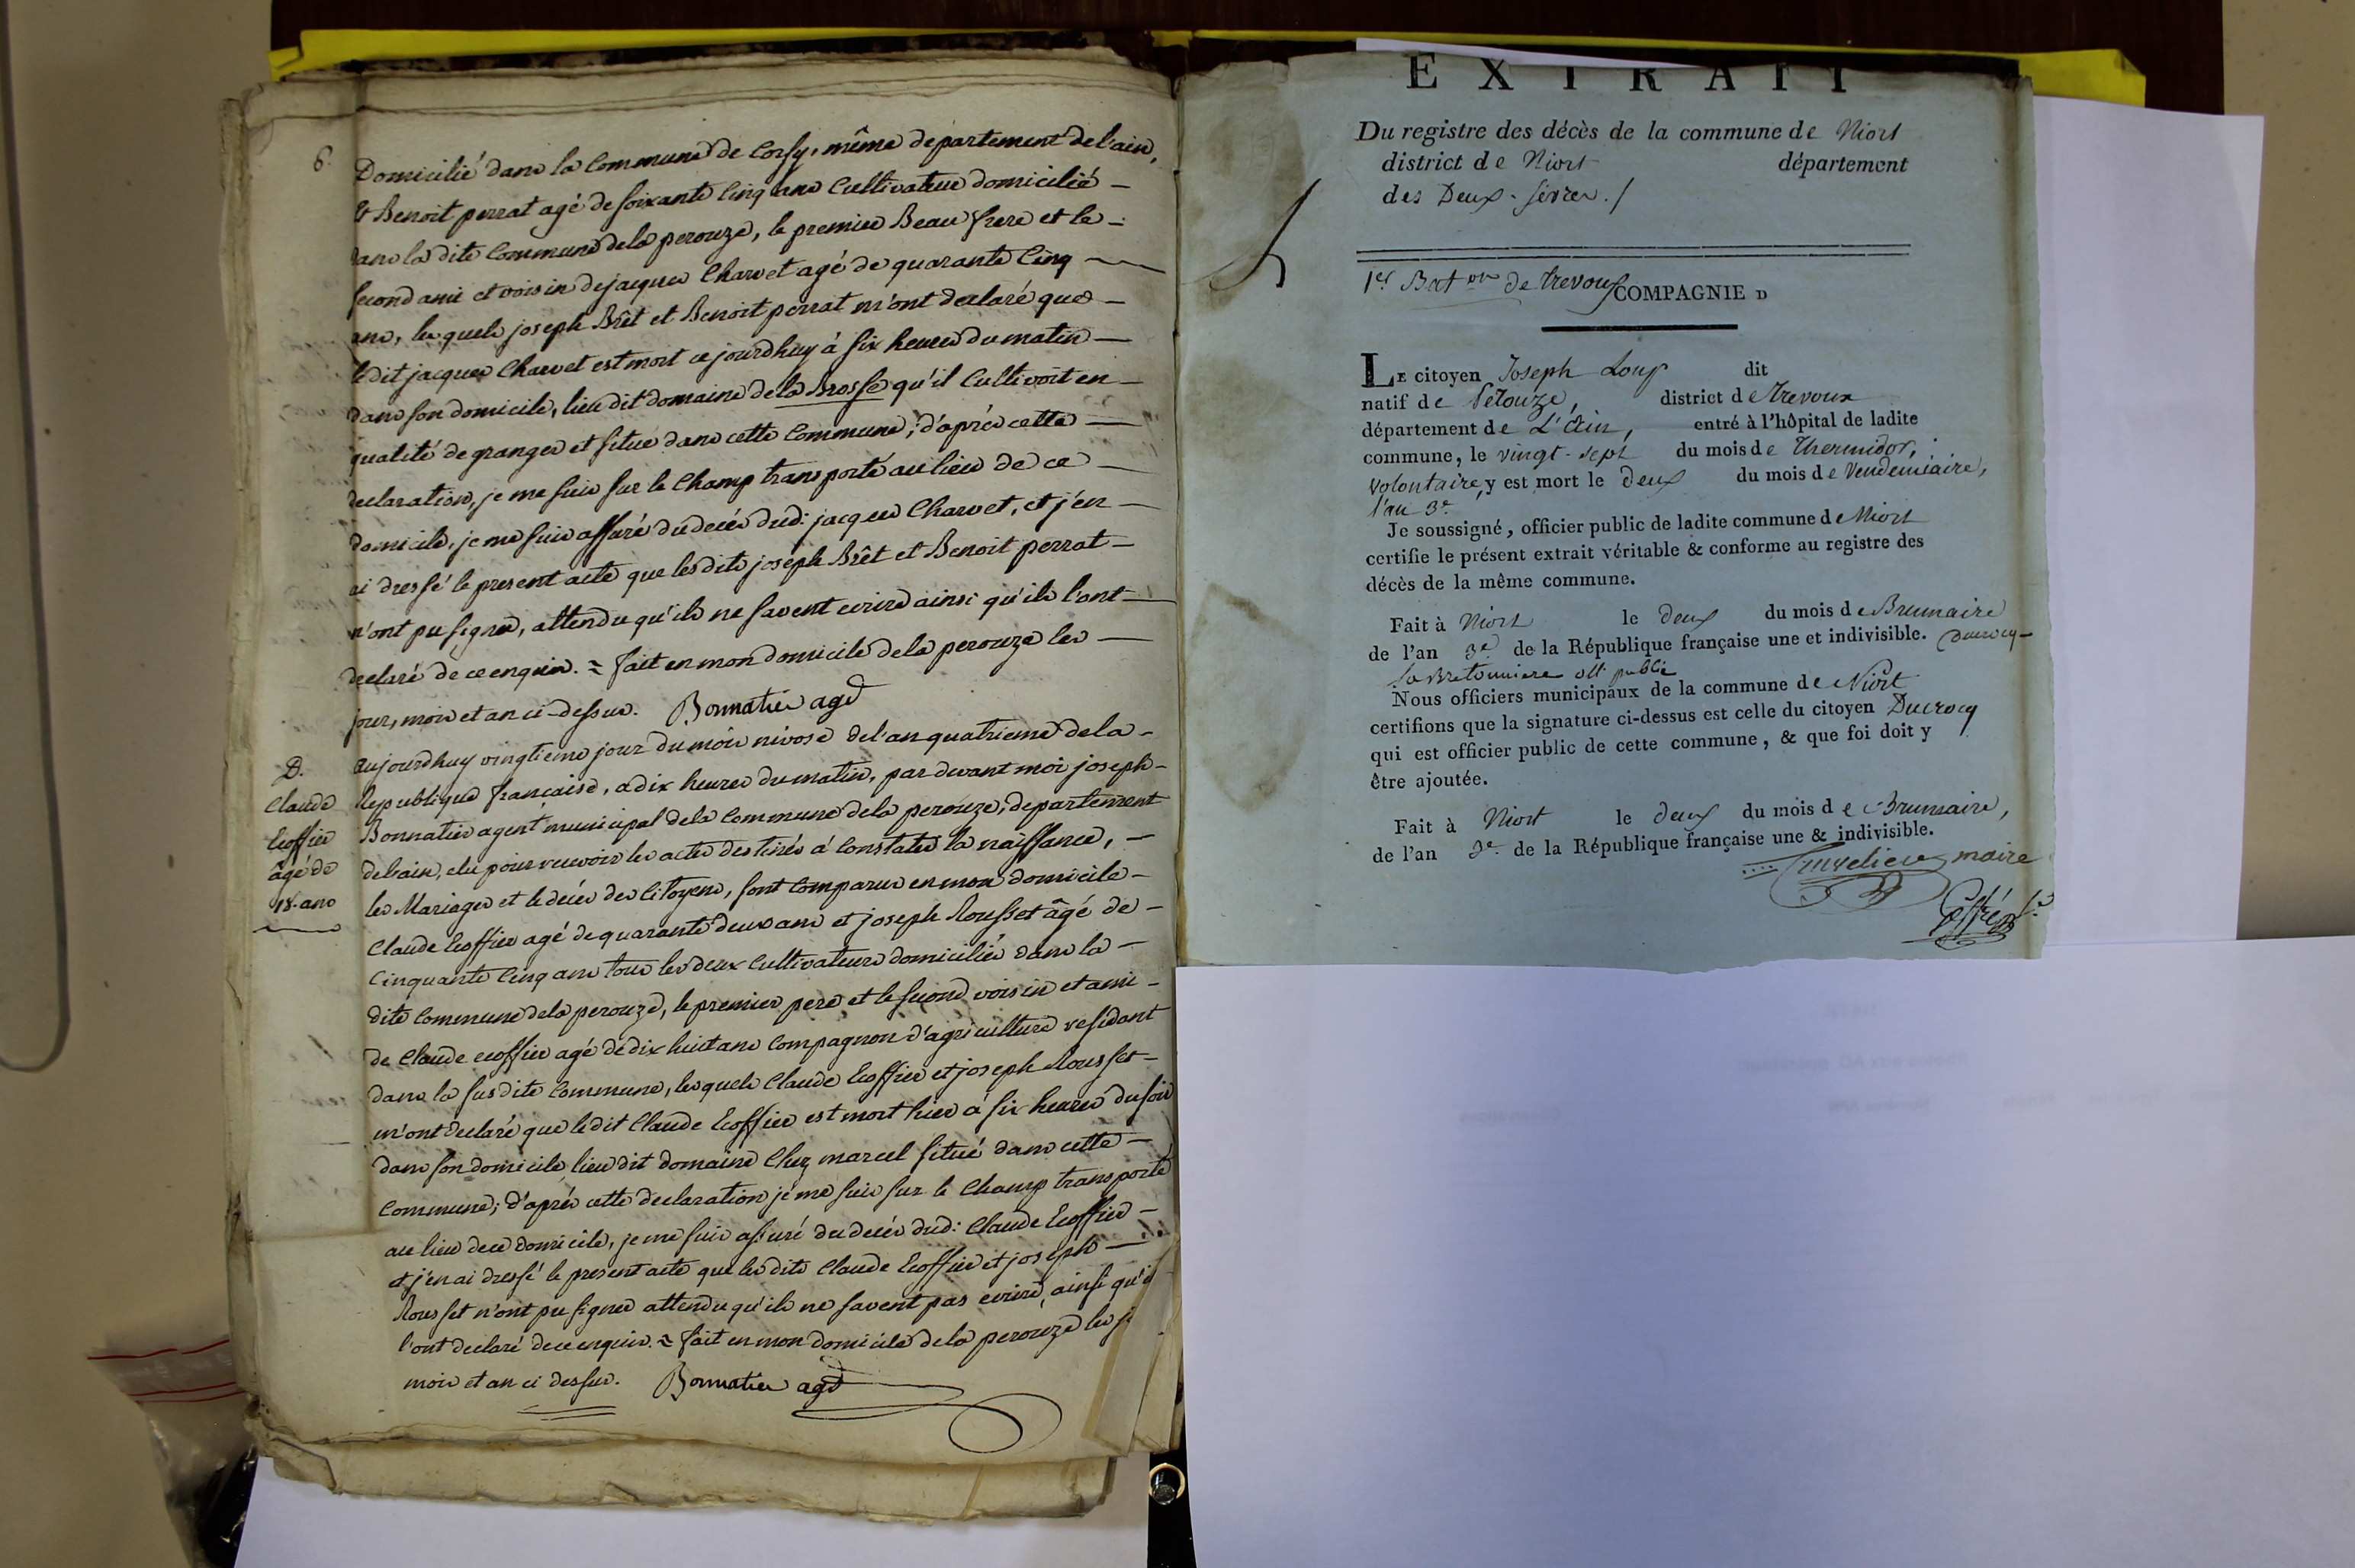 6.
Domicilié dans la Commune de Corsy, même département de l'ain,
& Benoit perrat agé de soixante Cinq ans Cultivateur domicilié —
dans la dite Commune de la perouze, le premier Beau frere et le —
second ami et voisin de jacques Charvet agé de quarante Cinq —
ans, les quels joseph Brêt et Benoit perrat m'ont declaré que —
ledit jacques Charvet est mort ce jourdhuy à six heures du matin —
dans son domicile, lieu dit domaine de la Brosse qu'il Cultivoit en —
qualité de granger et situé dans cette Commune; d'après cette —
declaration, je me suis sur le Champ transporté au lieu de ce —
domicile, je me suis assuré du decés dud: jacques Charvet, et j'en —
ai dressé le present acte que les dits joseph Brêt et Benoit perrat —
n'ont pu signer, attendu qu'ils ne savent ecrire ainsi qu'ils l'ont —
declaré de ce enquis. = fait en mon domicile de la perouze les —
jour, mois et an ci-dessus. Bonnatier agt
D.
Claude
Ecoffier
âgé de
18. ans
aujourdhuy vingtieme jour du mois nivose de l'an quatrieme de la —
Republique française, a dix heures du matin, par devant moi joseph —
Bonnatier agent municipal de la Commune de la perouze, departement
de l'ain, elu pour recevoir les actes destinés à Constater la naissance, —
les Mariages et le decés des Citoyens, sont Comparus en mon domicile —
Claude Ecoffier agé de quarante deux ans et joseph Rousset âgé de —
Cinquante Cinq ans tous les deux Cultivateurs domiciliés dans la —
dite Commune de la perouze, le premier pere et le second voisin et ami —
de Claude ecoffier agé de dix huit ans Compagnon d'agriculture residant
dans la susdite Commune, les quels Claude Ecoffier et joseph Rousset —
m'ont declaré que ledit Claude Ecoffier est mort hier à six heures du soir
dans son domicile, lieu dit domaine Chez marcel situé dans cette —
Commune; d'après cette declaration je me suis sur le Champ transporté
au lieu de ce domicile, je me suis assuré du decés dud: Claude Ecoffier —
& j'en ai dressé le present acte que les dits Claude Ecoffier et joseph —
Rousset n'ont pu signer attendu qu'ils ne savent pas ecrire, ainsi qu'i
l'ont declaré de ce enquis. = fait en mon domicile de la perouze les j
mois et an ci dessus. Bonnatier agt
EXTRAIT
Du registre des décès de la commune de Niort
district de Niort département
des Deux-Sèvres./
1er Bat on de Trevoux COMPAGNIE D
LE citoyen Joseph Loup dit
natif de Pérouze, district de Trevoux
département de L'Ain, entré à l'hôpital de ladite
commune, le vingt-sept du mois de Thermidor,
volontaire, y est mort le deux du mois de Vendemiaire,
l'an 3e
Je soussigné, officier public de ladite commune de Niort
certifie le présent extrait véritable & conforme au registre des
décès de la même commune.
Fait à Niort le deux du mois de Brumaire
de l'an 3e de la République française une et indivisible. Ducrocq-
La Bretonniere off. public
Nous officiers municipaux de la commune de Niort
certifions que la signature ci-dessus est celle du citoyen Ducrocq
qui est officier public de cette commune, & que foi doit y
être ajoutée.
Fait à Niort le deux du mois de Brumaire,
de l'an 3e de la République française une & indivisible.
maire